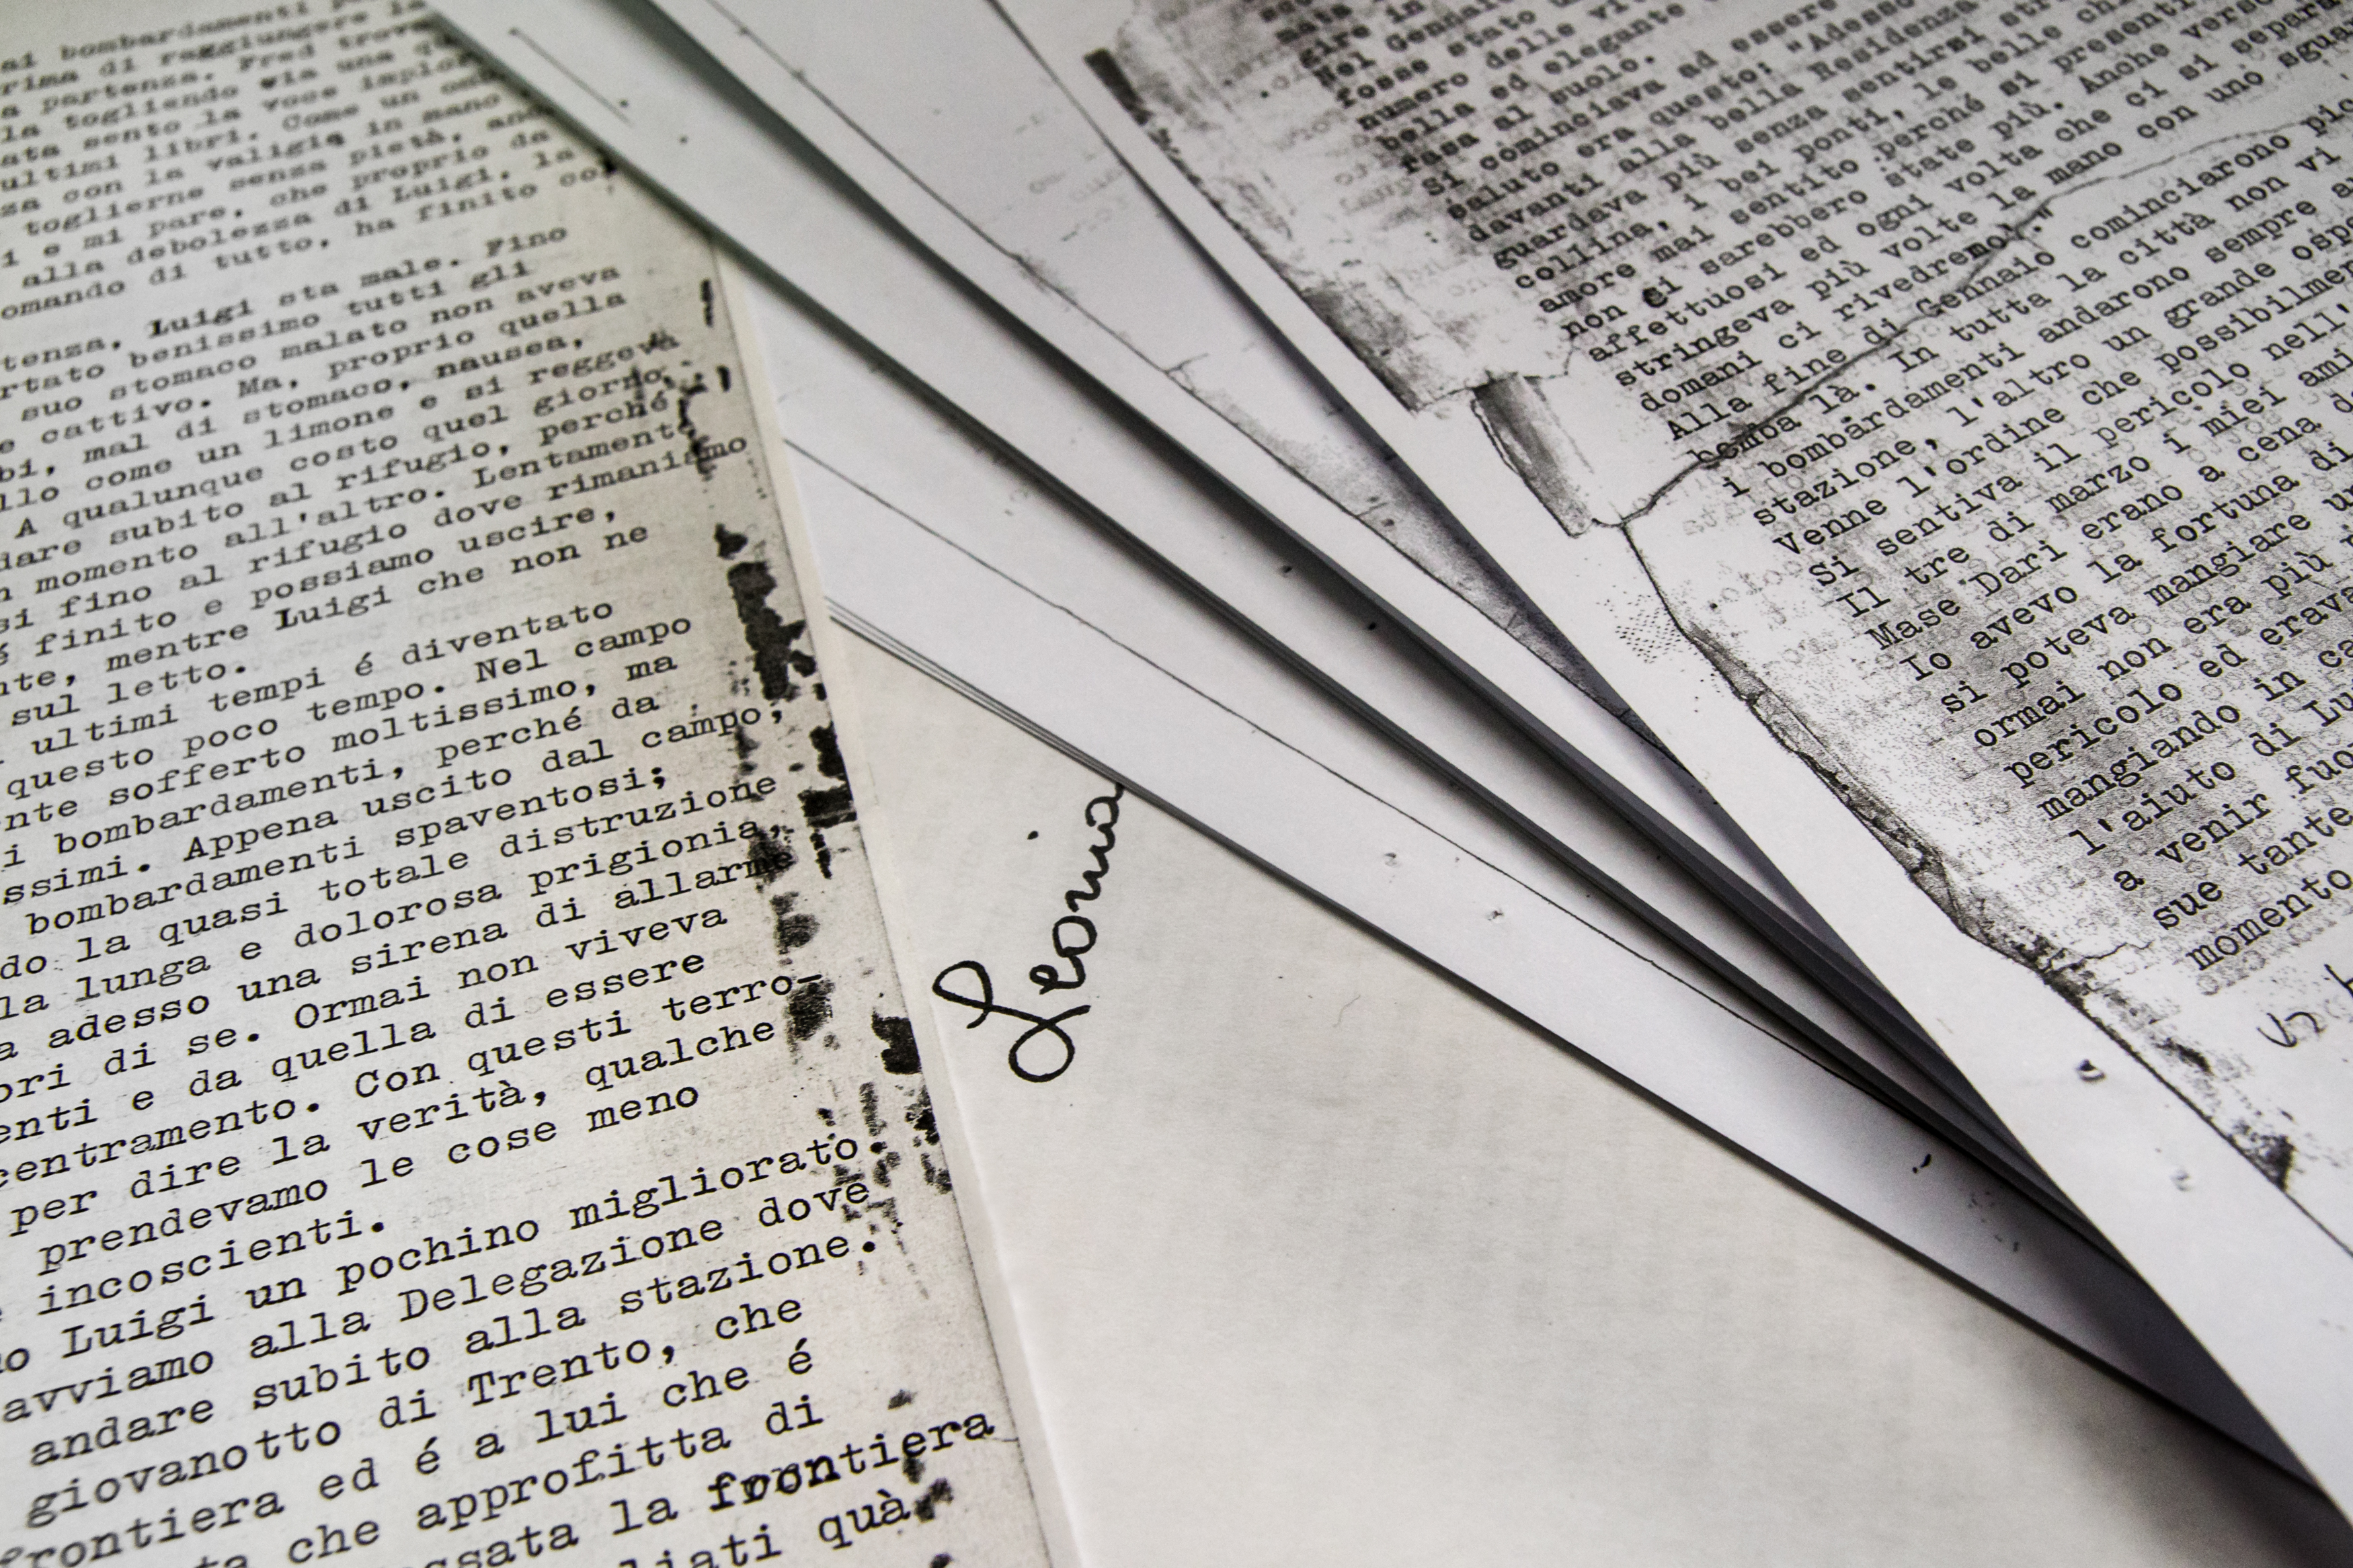 ai bombardamenti
prima di raggiungere la
a partenza. Fred trova
la togliendo via una
ata sento la voce
ultimi libri. Come un
za con la valigia in mano
toglierne senza pietà,
i e mi pare, che proprio da
alla debolezza di Luigi, la
omando di tutto, ha finito
tenza, Luigi sta male. Fino
rtato benissimo tutti gli
suo stomaco malato non aveva
e cattivo. Ma, proprio quella
bi, mal di stomaco, nausea,
llo come un limone e si reggeva
A qualunque costo quel giorno,
dare subito al rifugio, perché
n momento all'altro. Lentamente
si fino al rifugio dove rimaniamo
é finito e possiamo uscire,
nte, mentre Luigi che non ne
sul letto.
ultimi tempi é diventato
questo poco tempo. Nel campo
nte sofferto moltissimo, ma
i bombardamenti, perché da
ssimi. Appena uscito dal campo,
bombardamenti spaventosi;
do la quasi totale distruzione
la lunga e dolorosa prigionia,
a adesso una sirena di allarme
ori di se. Ormai non viveva
enti e da quella di essere
centramento. Con questi terro-
per dire la verità, qualche
prendevamo le cose meno
incoscienti.
no Luigi un pochino migliorato.
avviamo alla Delegazione dove
andare subito alla stazione.
giovanotto di Trento, che
frontiera ed é a lui che é
ta che approfitta di
ssata la frontiera
liati quà
gire in
Nel
fosse stato
numero delle
bella ed elegante
rasa al suolo.
Si cominciava ad essere
saluto era questo: "Adesso
davanti alla bella Residenza
guardava più senza sentirsi
collina, i bei ponti, le belle
amore mai sentito perché si presenti
non ci sarebbero state più. Anche verso
affettuosi ed ogni volta che ci si separa
stringeva più volte la mano con uno sguar
domani ci rivedremo!."
Alla fine di Gennaio cominciarono
bomba là. In tutta la città non vi
i bombardamenti andarono sempre
stazione, l'altro un grande ospe
Venne l'ordine che possibilmen
Si sentiva il pericolo nell'
Il tre di marzo i miei ami
Mase Dari erano a cena
Io avevo la fortuna di
si poteva mangiare
ormai non era più
pericolo ed erava
mangiando in
l'aiuto di Lu
a venir fuo
sue tante
momento